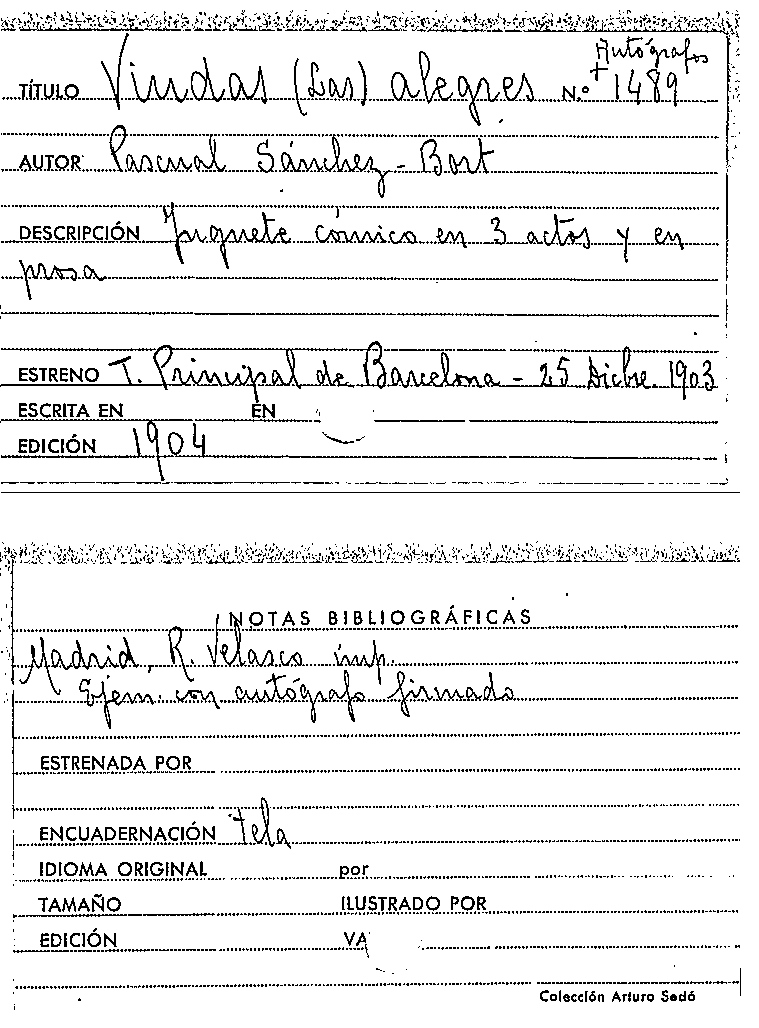 Autógrafos
TÍTULO Viudas (Las) alegres N.º + 1489
AUTOR Pascual Sánchez-Bort
DESCRIPCIÓN Juguete cómico en 3 actos y en
prosa
ESTRENO T. Principal de Barcelona - 25 Dicbre. 1903
ESCRITA EN EN
EDICIÓN 1904
NOTAS BIBLIOGRÁFICAS
Madrid, R. Velasco imp.
Ejem. con autógrafo firmado
ESTRENADA POR
ENCUADERNACIÓN tela
IDIOMA ORIGINAL por
TAMAÑO ILUSTRADO POR
EDICIÓN VA
Colección Arturo Sedó